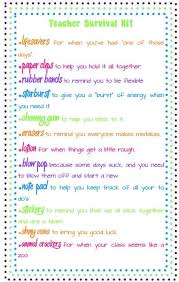 Teacher Survival Kit
lifesavers for when you've had "one of those
days".
paper clips to help you hold it all together
rubber bands to remind you to be flexible
starburst to give you a "burst" of energy when
you need it
chewing gum to help you stick to it.
erasers to remind you everyone makes mistakes.
lotion for when things get a little rough.
blow pop because some days suck, and you need
to blow them off and start a new
note pad to help you keep track of all your to
do's
stickers to remind you that we all stick together
and are a team
shiny coins to bring you good luck
animal crackers for when your class seems like a
zoo